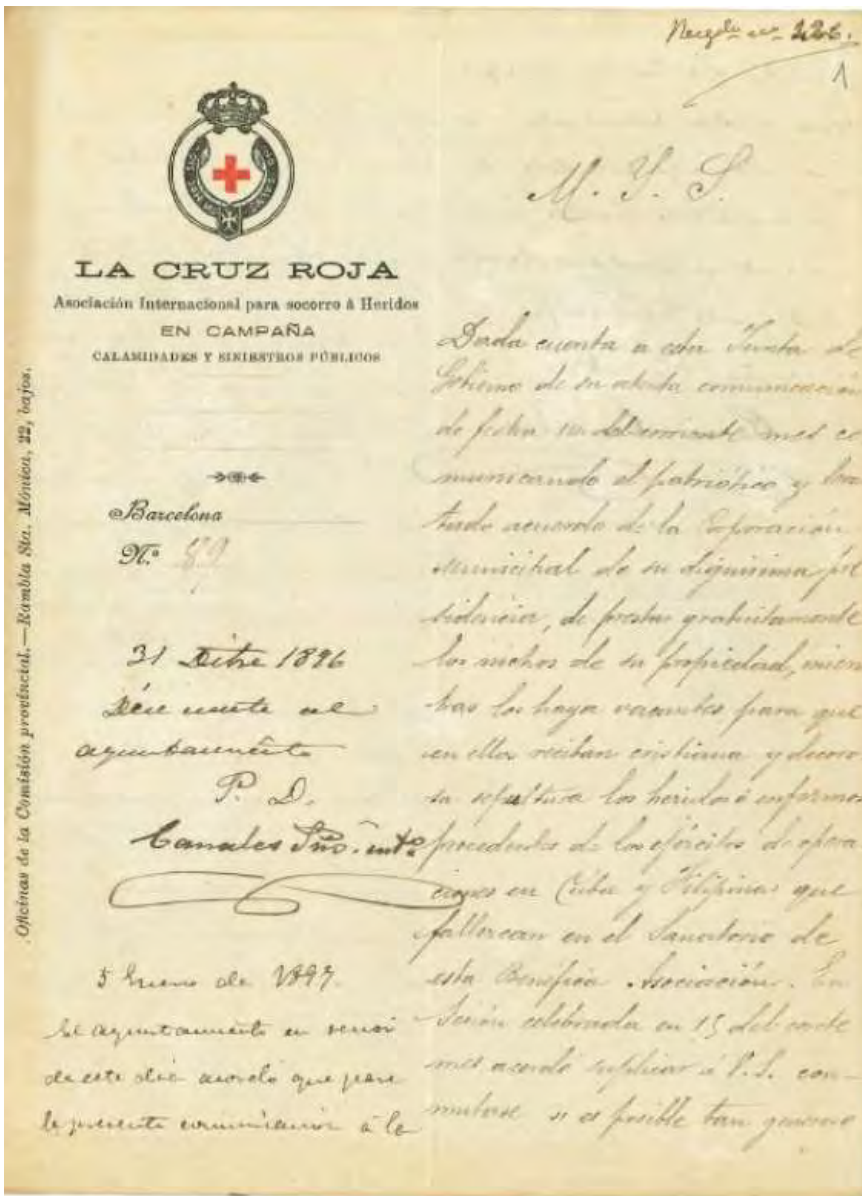 226.
1
M. Y. S.
LA CRUZ ROJA
Asociación Internacional para socorro á Heridos
EN CAMPAÑA
CALAMIDADES Y SINIESTROS PÚBLICOS
Barcelona
N.º 89
31 Dibre 1896
Dése cuenta al
ayuntamiento
P. D.
Canales
5 Enero de 1897.
El ayuntamiento en sesion
de este dia acordó que pase
la presente comunicacion á la
Oficinas de la Comisión provincial.—Rambla Sta. Mónica, 22, bajos.
Dada cuenta a esta Junta de
Gobierno de su atenta comunicación
de fecha del corriente mes co
municando el patriótico y
acuerdo de la Corporación
Municipal de su dignisima pre
sidencia, de prestar gratuitamente
los nichos de su propiedad, mien
tras los haya vacantes para que
en ellos reciban cristiana y decoro
sa sepultura los heridos ó enfermos
procedentes de los ejércitos de opera
ciones en Cuba y Filipinas que
fallezcan en el Sanatorio de
esta Benéfica Asociación. En
Sesión celebrada en 15 del corrte
mes acordó suplicar á V.S. con-
mutase si es posible tan generoso